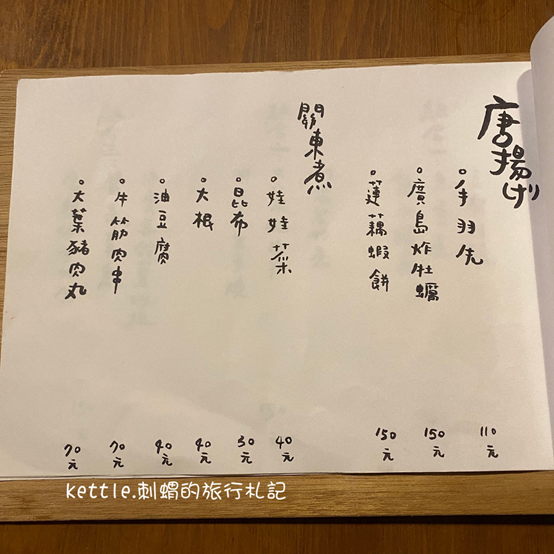 唐揚げ
。手羽先 110元
。廣島炸牡蠣 150元
。蓮藕蝦餅 150元
關東煮
。娃娃菜 40元
。昆布 30元
。大根 40元
。油豆腐 40元
。牛筋肉串 70元
。大葉豬肉丸 70元
kettle.刺蝟的旅行札記